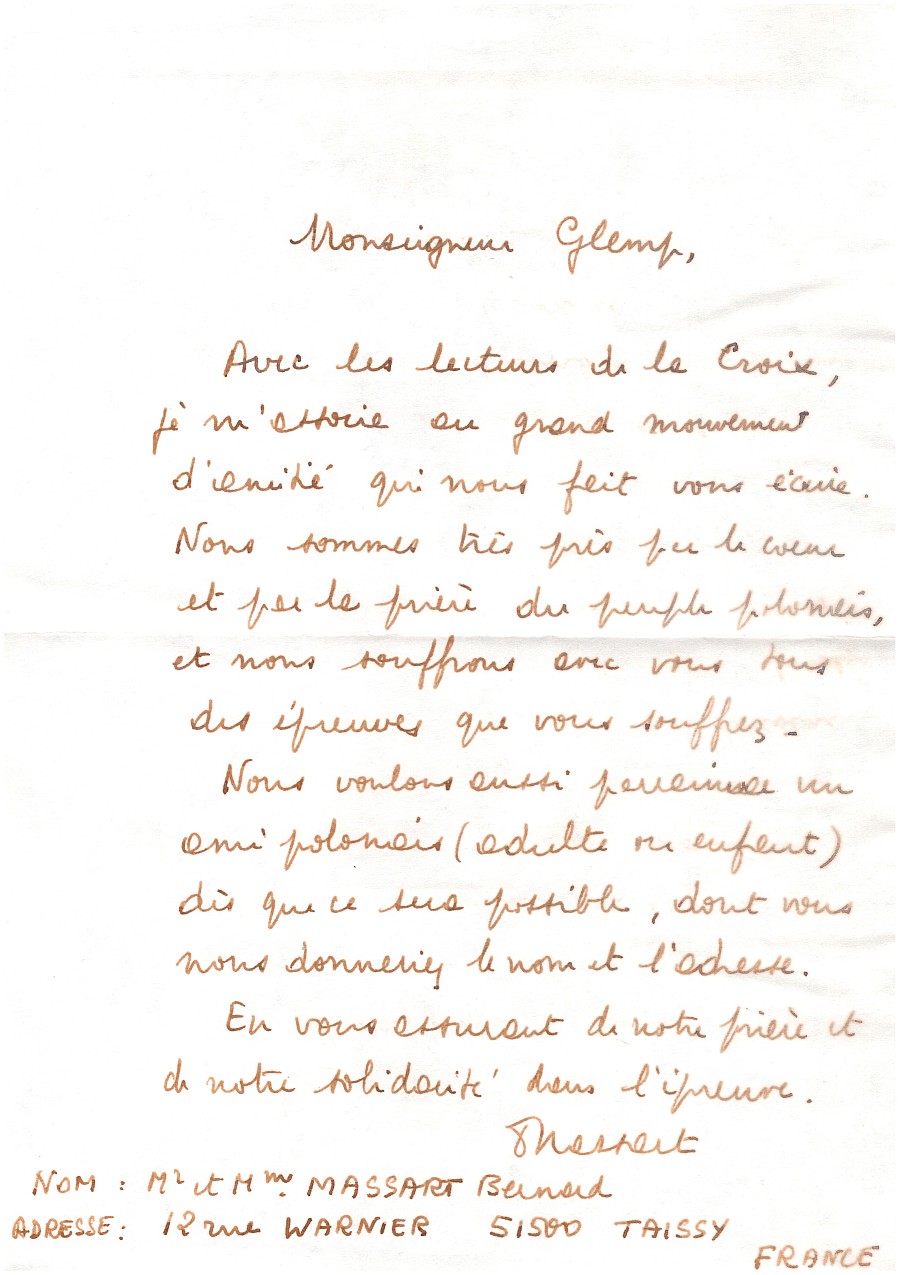 Monseigneur Glemp,
Avec les lecteurs de la Croix,
je m'associe au grand mouvement
d'amitié qui nous fait vous écrire.
Nous sommes très près par le coeur
et par la prière du peuple polonais,
et nous souffrons avec vous tous
des épreuves que vous souffrez.
Nous voulons aussi parrainer un
ami polonais (adulte ou enfant)
dès que ce sera possible, dont vous
nous donneriez le nom et l'adresse.
En vous assurant de notre prière et
de notre solidarité dans l'épreuve.
Massart
NOM : Mr et Mme MASSART Bernard
ADRESSE : 12 rue WARNIER 51500 TAISSY
FRANCE